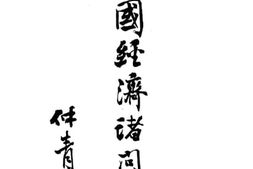 國經濟諸問
仲青